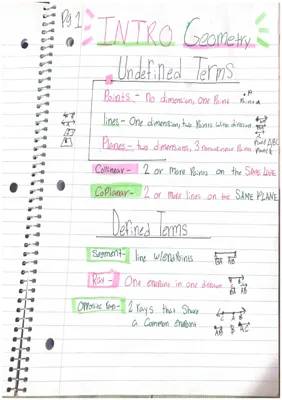 Pg 1
INTRO Geometry
Undefined Terms
Points - No dimension, One Point
lines - One dimension, two Points
Planes - two dimensions, 3
Collinear - 2 or more Points on the SAME LINE
CoPlanar - 2 or more lines on the SAME PLANE
Defined Terms
Segment - line w/endPoints
Ray - One endPoint in one direction
Opposite Rays - 2 rays that Share
a Common endPoint